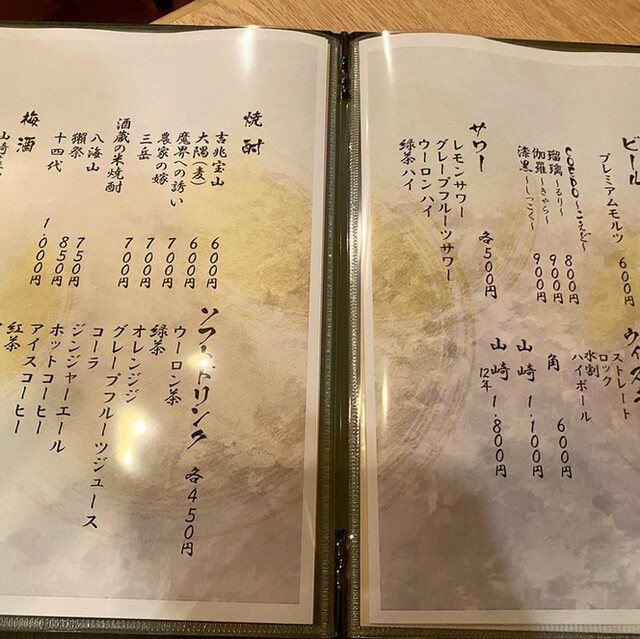 ビール
プレミアムモルツ 600円
COEDO～こえど～
瑠璃～るり～ 800円
伽羅～きゃら～ 900円
漆黒～しっこく～ 900円
サワー
レモンサワー
グレープフルーツサワー
ウーロンハイ
緑茶ハイ
各500円
ストレート
ロック
水割
ハイボール
角 600円
山崎 1,100円
山崎 12年 1,800円
焼酎
吉兆宝山 600円
大隅(麦) 600円
魔界への誘い 700円
農家の嫁 700円
三岳 700円
酒蔵の米焼酎
八海山 750円
獺祭 850円
十四代 1,000円
梅酒
ソフトドリンク 各450円
ウーロン茶
緑茶
オレンジジ
グレープフルーツジュース
コーラ
ジンジャーエール
ホットコーヒー
アイスコーヒー
紅茶